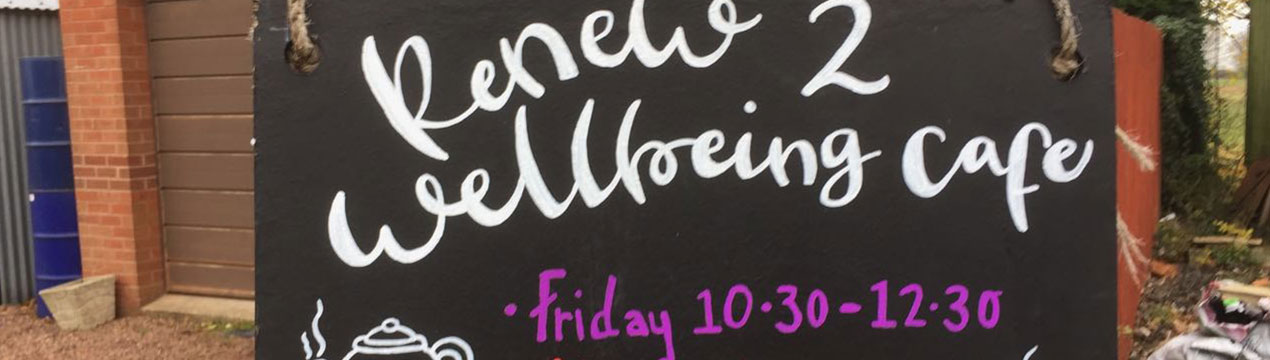 Renew 2
wellbeing cafe
• Friday 10·30-12·30